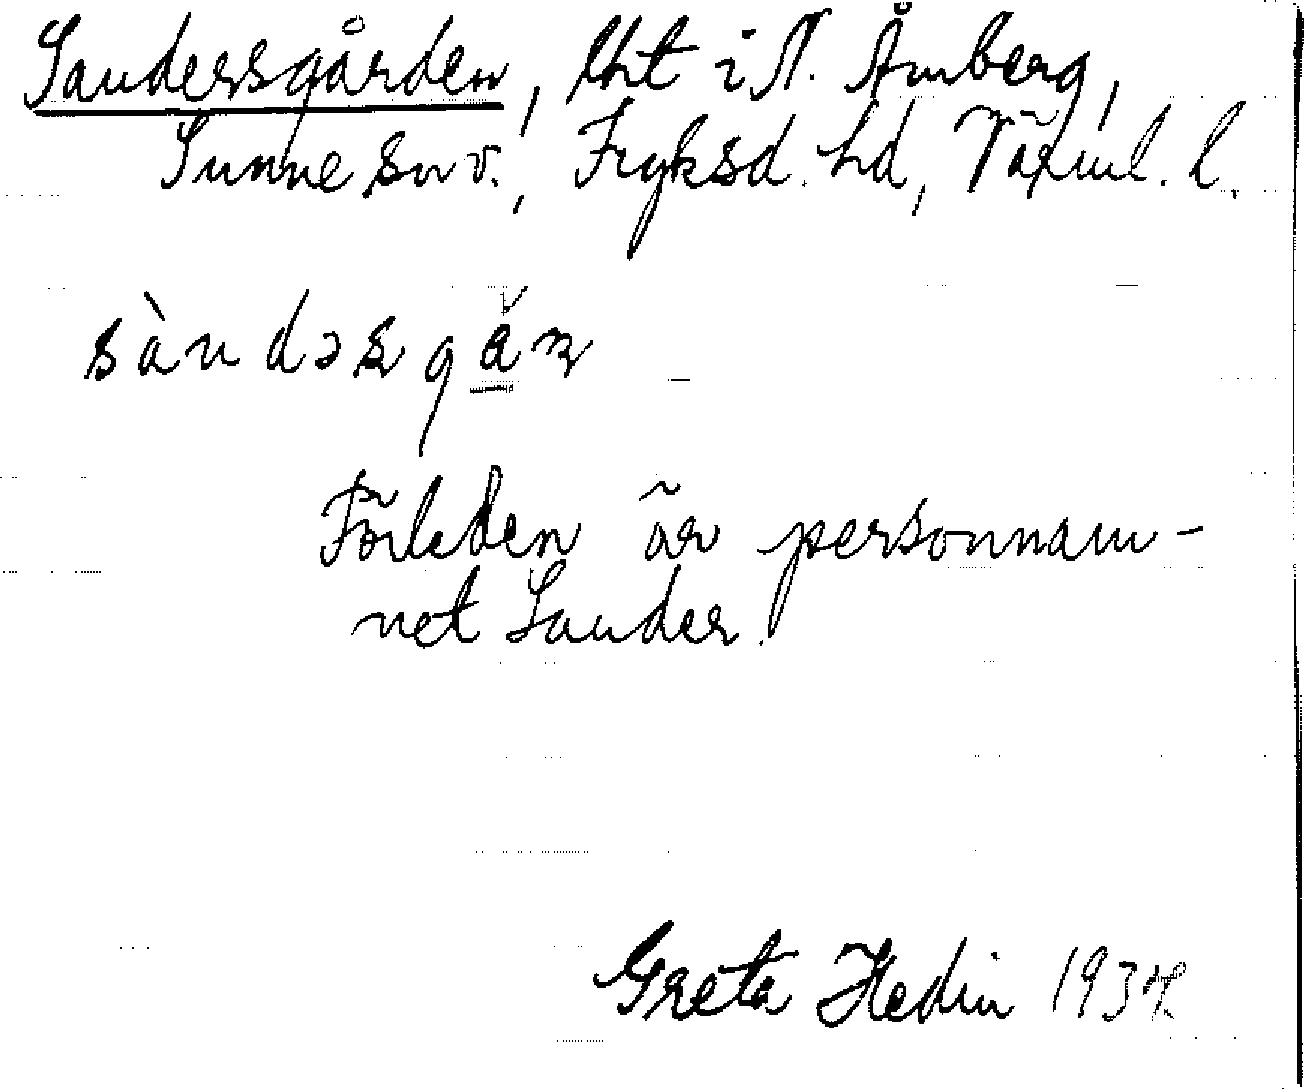 Sandersgården, lht i N. Åmberg,
Sunne sn v., Fryksd. hd, Värml. l.
sàndəsgɑ̊ɳ
Förleden är personnam-
net Sander.
Greta Hedin 1934